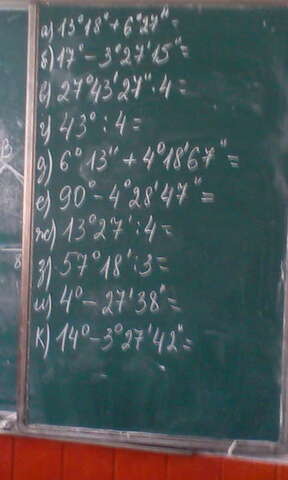 а) 13°18' + 6°27'' =
б) 17° − 3°27'15'' =
в) 27°43'27'' : 4 =
г) 43° : 4 =
д) 6°13'' + 4°18'67'' =
е) 90° − 4°28'47'' =
ж) 13°27' : 4 =
з) 57°18' : 3 =
и) 4° − 27'38'' =
к) 14° − 3°27'42'' =